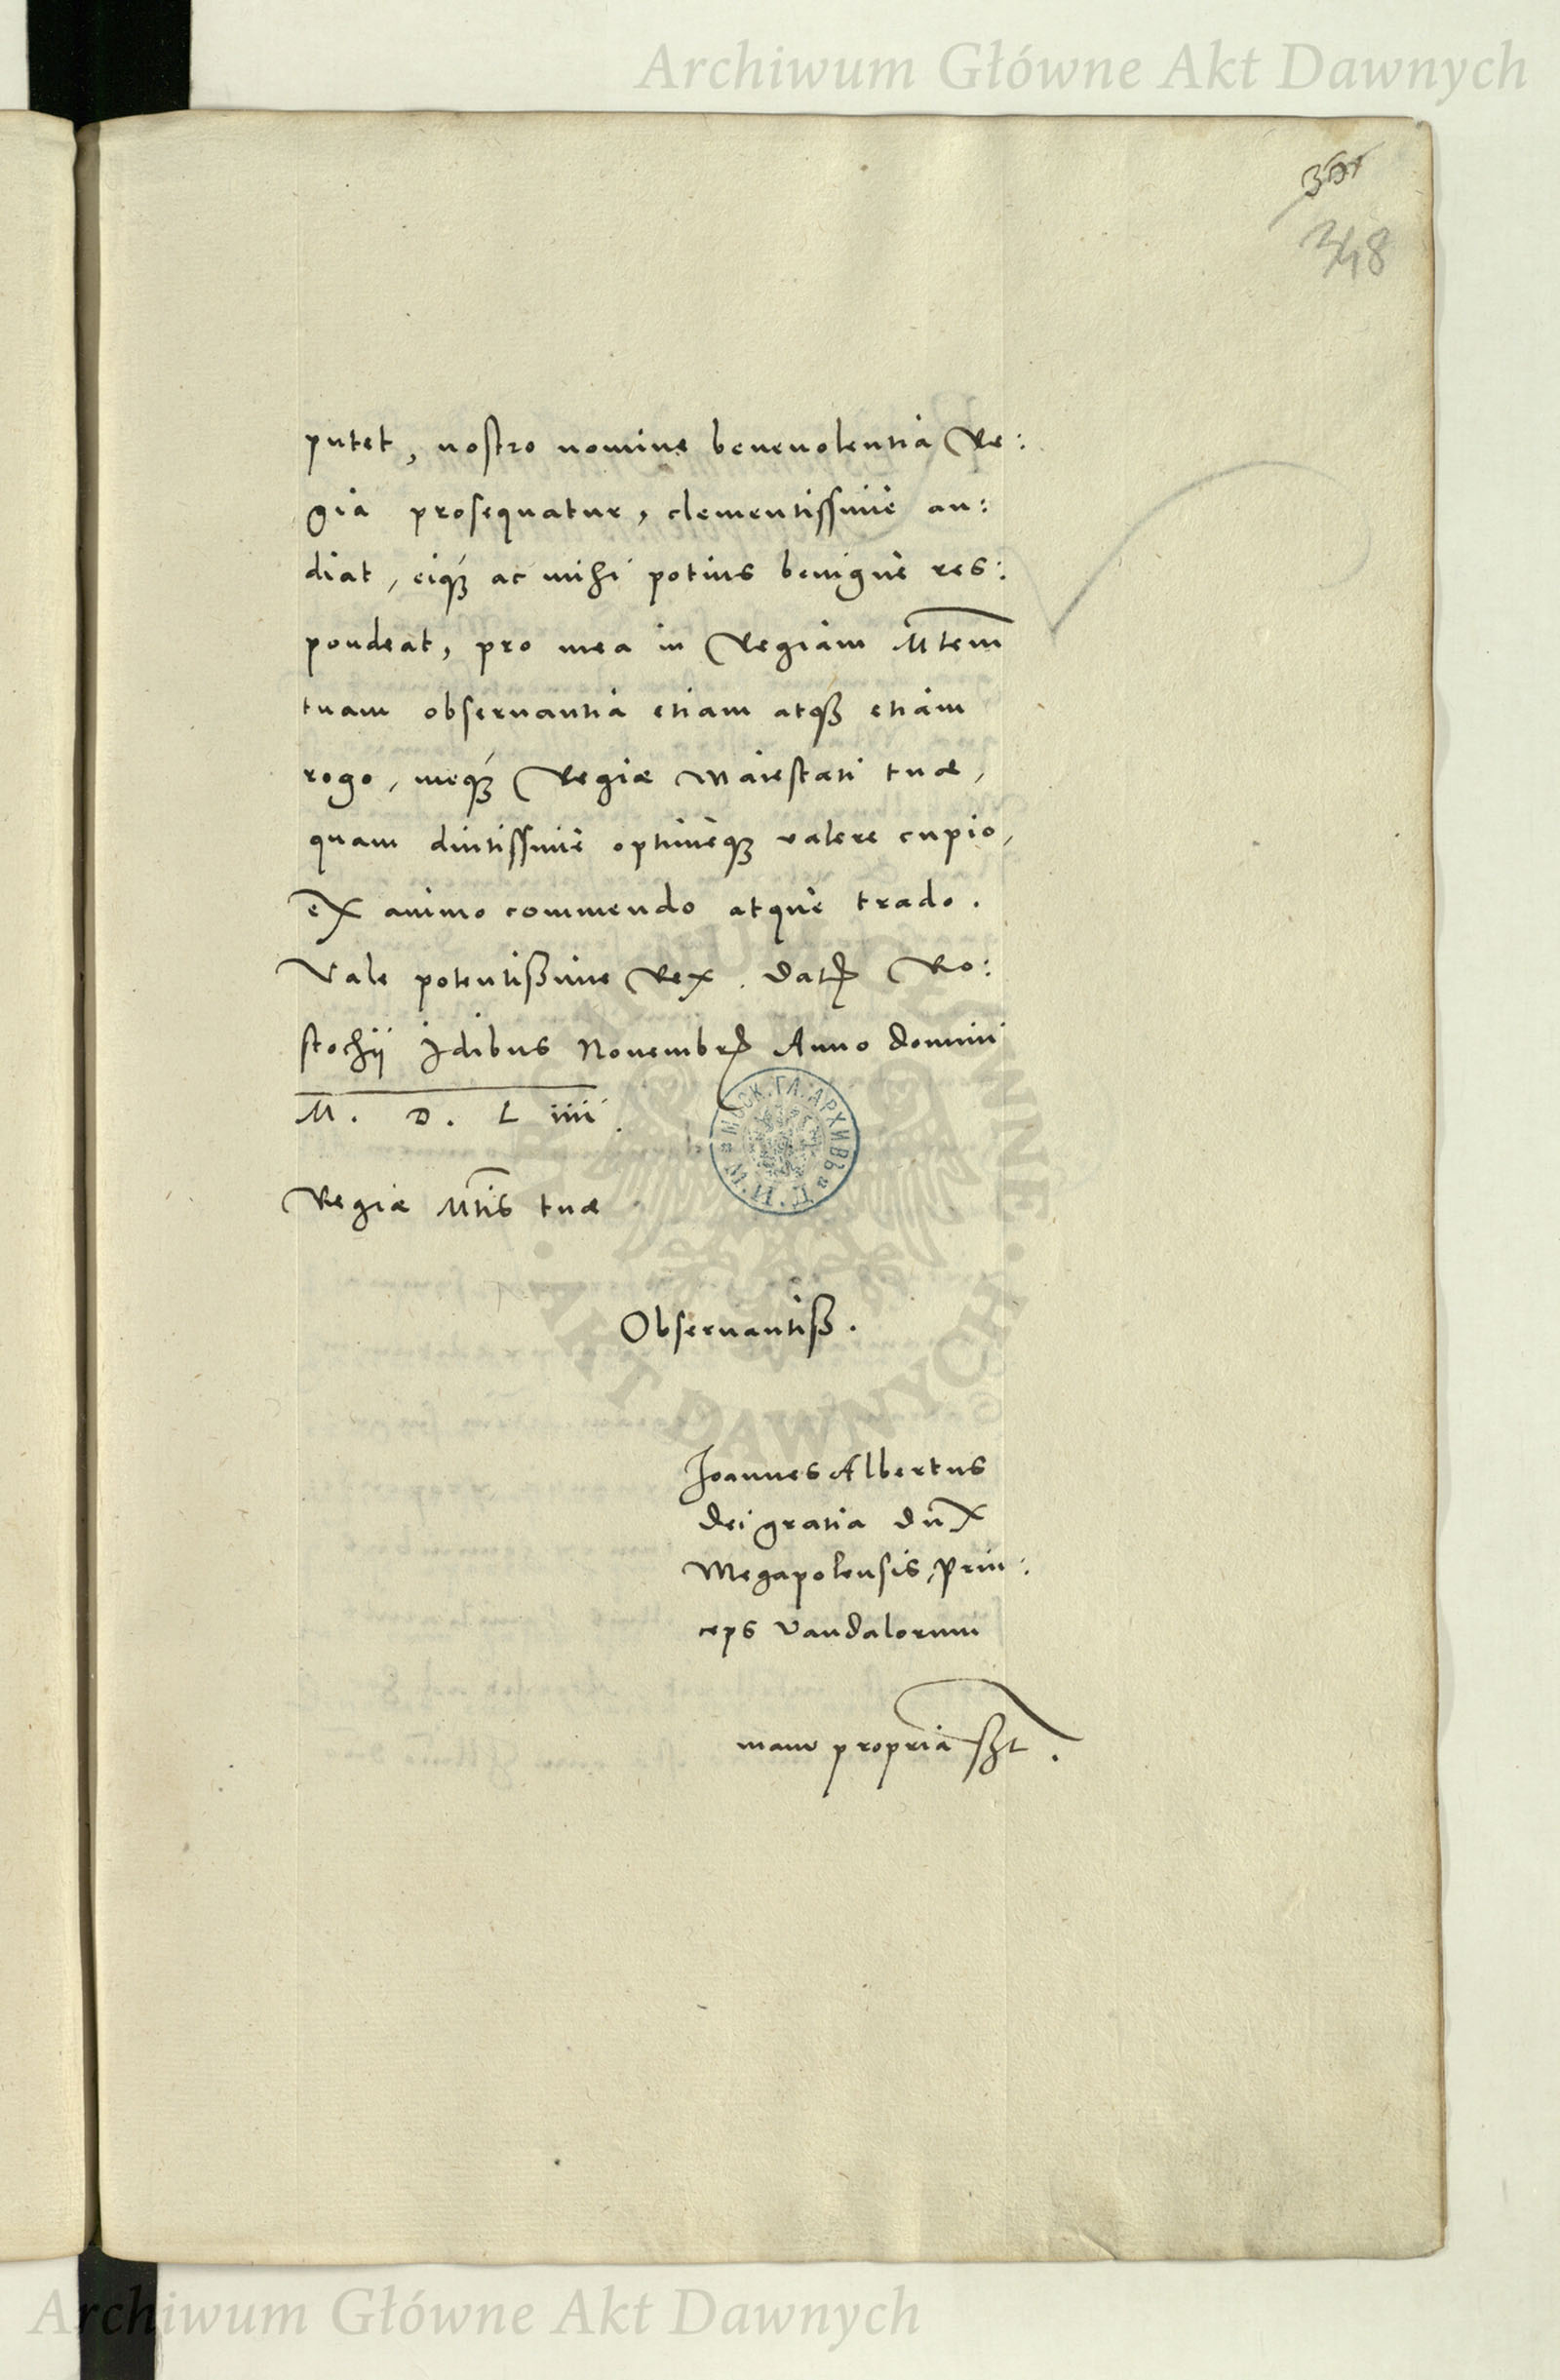 Archiwum Główne Akt Dawnych
348
putet, nostro nomine beneuolentia Re:
gia prosequatur, clementissimè au:
diat, eiq́ꝫ ac mihi potius benignè res:
pondeat, pro mea in Regiam M̅tem
tuam obseruantia etiam atqꝫ etiam
rogo, meq́ꝫ Regiæ Maiestati tuæ,
quam diutissimè optimeqꝫ valere cupio,
ex animo commendo atque trado.
Vale potentißime Rex. Datꝭ Ro:
stochij Idibus Nouembrꝭ Anno Domini
M. D. L iiii.
Regiæ M̅tis tuæ
Obseruantiß.
Joannes Albertus
Dei gratia Dux
Megapolensis, Prin:
ceps Vandalorum
manu propria sszt.
МОСК. ГЛ. АРХИВЪ
ARCHIWUM GŁÓWNE
AKT DAWNYCH
Archiwum Główne Akt Dawnych